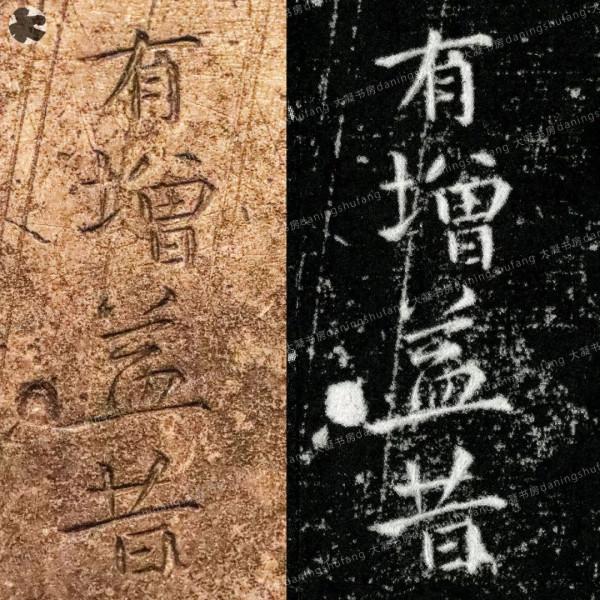 有增益昔
有增益昔
大凝书房daningshufang